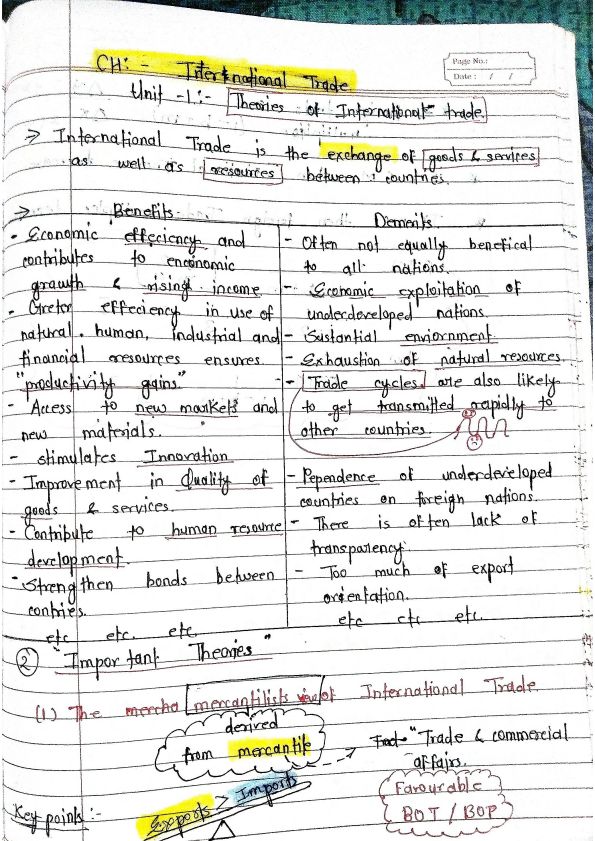 Page No.:
Date: / /
CH: - International Trade
Unit -1:- Theories of International" trade.
→ International Trade is the exchange of goods & services
as well as resources between countries.
→ Benefits.
- Economic effeciency and
contributes to enconomic
growth & rising income
- Greter effeciency in use of
natural, human, industrial and
financial resources ensures
"productivity gains."
- Access to new markets and
new materials.
- stimulates Innovation
- Improvement in Quality of
goods & services.
- Contribute to human resource
development.
- Strengthen bonds between
contries.
etc etc. etc
Demerits
- Often not equally benefical
to all nations.
- Economic exploitation of
underdeveloped nations.
- Sustantial enviornment.
- Exhaustion of natural resources.
- Trade cycles are also likely
to get transmitted rapidly to
other countries.
- Dependence of underdeveloped
countries on foreign nations.
- There is often lack of
transparency.
- Too much of export
orientation.
etc etc etc.
2 "Important Theories"
(1) The mercha mercantilists view of International Trade.
derived
from mercantile
Trad "Trade & commercial
affairs.
Key points :-
Exports > Imports
Favourable
BOT / BOP